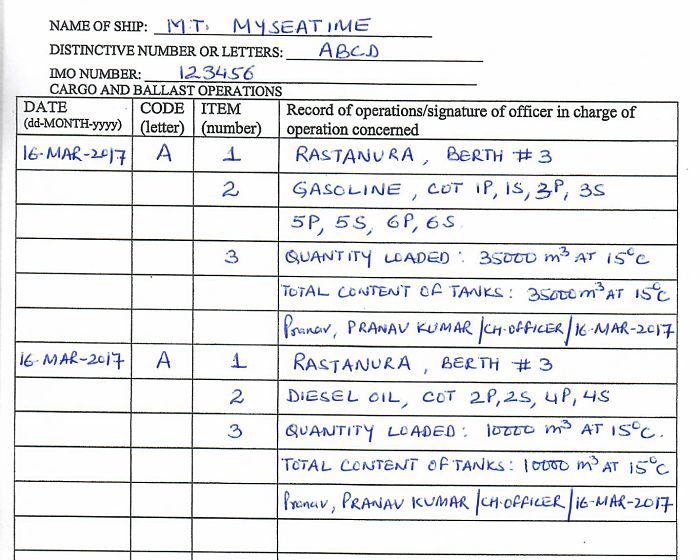 NAME OF SHIP: M.T. MYSEATIME
DISTINCTIVE NUMBER OR LETTERS: ABCD
IMO NUMBER: 123456
CARGO AND BALLAST OPERATIONS
DATE (dd-MONTH-yyyy) CODE (letter) ITEM (number) Record of operations/signature of officer in charge of operation concerned
16-MAR-2017 A 1 RASTANURA, BERTH # 3
2 GASOLINE, COT 1P, 1S, 3P, 3S
5P, 5S, 6P, 6S
3 QUANTITY LOADED: 35000 m³ AT 15°C
TOTAL CONTENT OF TANKS: 35000 m³ AT 15°C
Pranav, PRANAV KUMAR /CH.OFFICER/16-MAR-2017
16-MAR-2017 A 1 RASTANURA, BERTH # 3
2 DIESEL OIL, COT 2P, 2S, 4P, 4S
3 QUANTITY LOADED: 10000 m³ AT 15°C.
TOTAL CONTENT OF TANKS: 10000 m³ AT 15°C
Pranav, PRANAV KUMAR /CH.OFFICER/16-MAR-2017